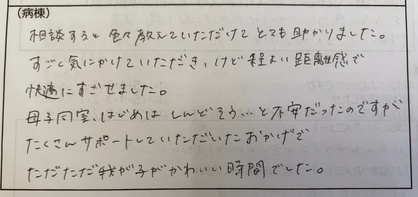 (病棟)
相談すると色々教えていただけてとても助かりました。
すごく気にかけていただき、けど程よい距離感で
快適にすごせました。
母子同室、はじめはしんどそう…と不安だったのですが
たくさんサポートしていただいたおかげで
ただただ我が子がかわいい時間でした。